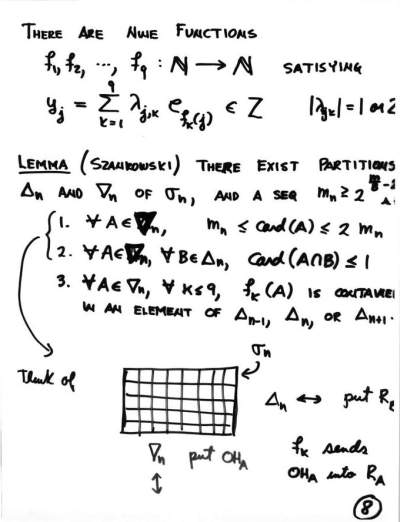 THERE ARE NINE FUNCTIONS
f₁, f₂, ..., f₉ : ℕ → ℕ SATISFYING
y_j = Σ_{k=1}^{9} λ_{j,k} e_{f_k(j)} ∈ Z |λ_{jk}| = 1 or 2
LEMMA (SZANKOWSKI) THERE EXIST PARTITIONS
Δn AND ∇n OF σn, AND A SEQ mn ≥ 2
1. ∀ A ∈ ∇n, mn ≤ card(A) ≤ 2 mn
2. ∀ A ∈ ∇n, ∀ B ∈ Δn, card(A∩B) ≤ 1
3. ∀ A ∈ ∇n, ∀ k ≤ 9, f_k(A) IS
IN AN ELEMENT OF Δn-1, Δn, OR Δn+1.
σn
Think of
Δn ↔ put
∇n put OH_A
↕
f_k sends
OH_A into R_A
8